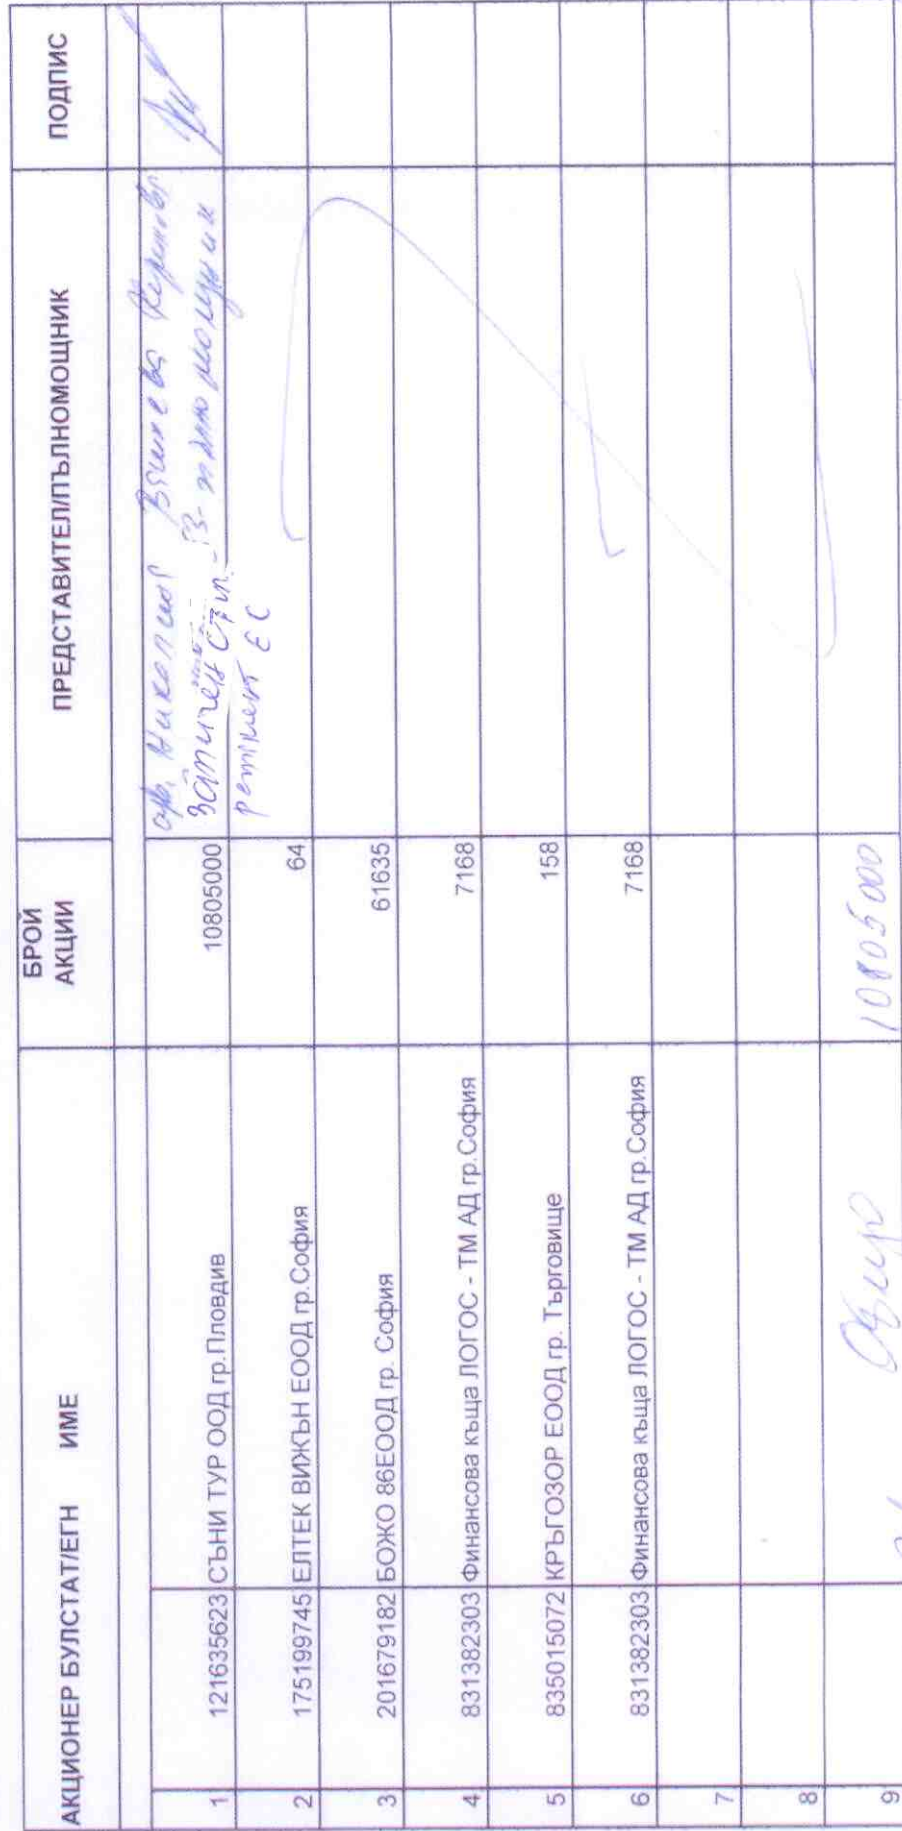 АКЦИОНЕР БУЛСТАТ/ЕГН ИМЕ БРОЙ АКЦИИ ПРЕДСТАВИТЕЛ/ПЪЛНОМОЩНИК ПОДПИС
1 121635623 СЪНИ ТУР ООД гр.Пловдив 10805000
2 175199745 ЕЛТЕК ВИЖЪН ЕООД гр.София 64
3 201679182 БОЖО 86ЕООД гр. София 61635
4 831382303 Финансова къща ЛОГОС - ТМ АД гр.София 7168
5 835015072 КРЪГОЗОР ЕООД гр. Търговище 158
6 831382303 Финансова къща ЛОГОС - ТМ АД гр.София 7168
7
8
9 10805000